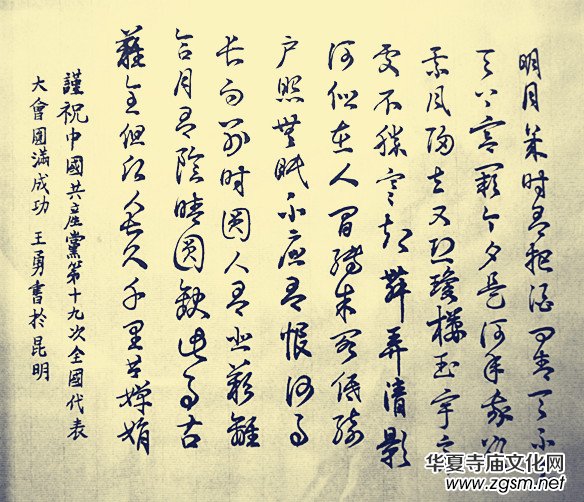 明月幾时有把酒问青天不
天上宫阙今夕是何年我欲
乘风归去又恐瓊樓玉宇高
处不勝寒起舞弄清影
何似在人间转朱阁低绮
户照無眠不应有恨何事
长向别时圆人有悲歡離
合月有陰晴圆缺此事古
難全但願人长久千里共嬋娟
謹祝中國共産黨第十九次全國代表
大會圓滿成功 王勇書於昆明
华夏寺庙文化网
www.zgsm.net